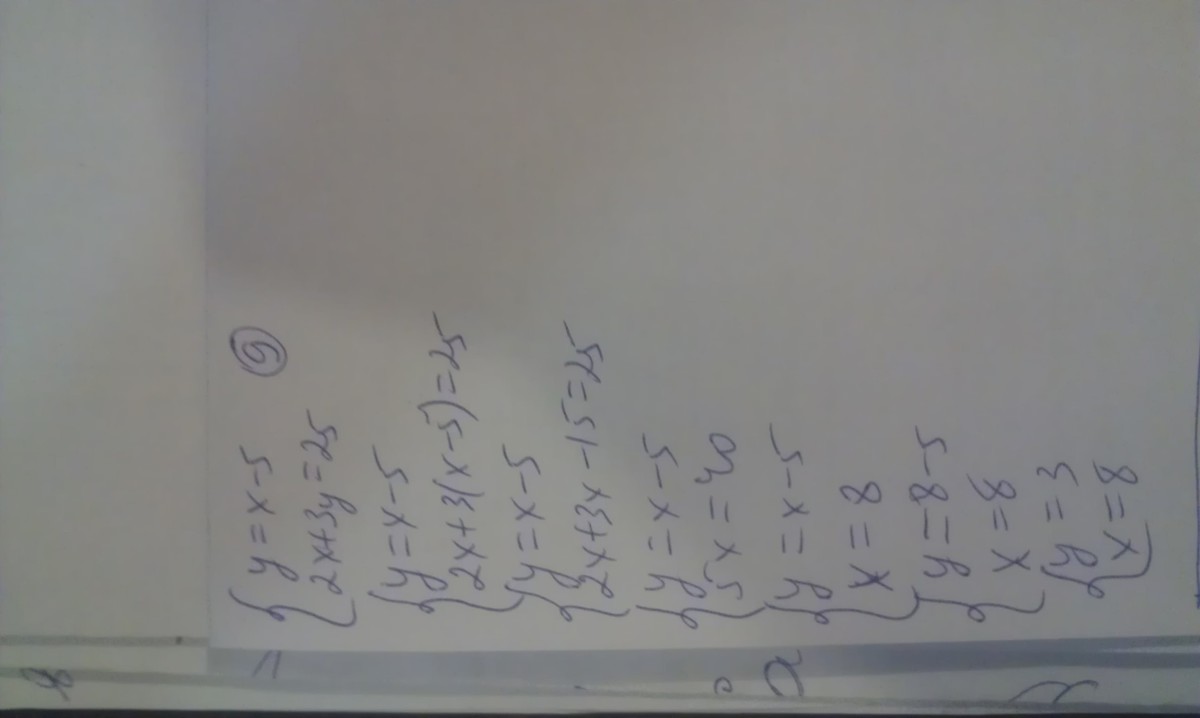 y = x - 5 ⑨
2x + 3y = 25
y = x - 5
2x + 3(x - 5) = 25
y = x - 5
2x + 3x - 15 = 25
y = x - 5
5x = 40
y = x - 5
x = 8
y = 8 - 5
x = 8
y = 3
x = 8